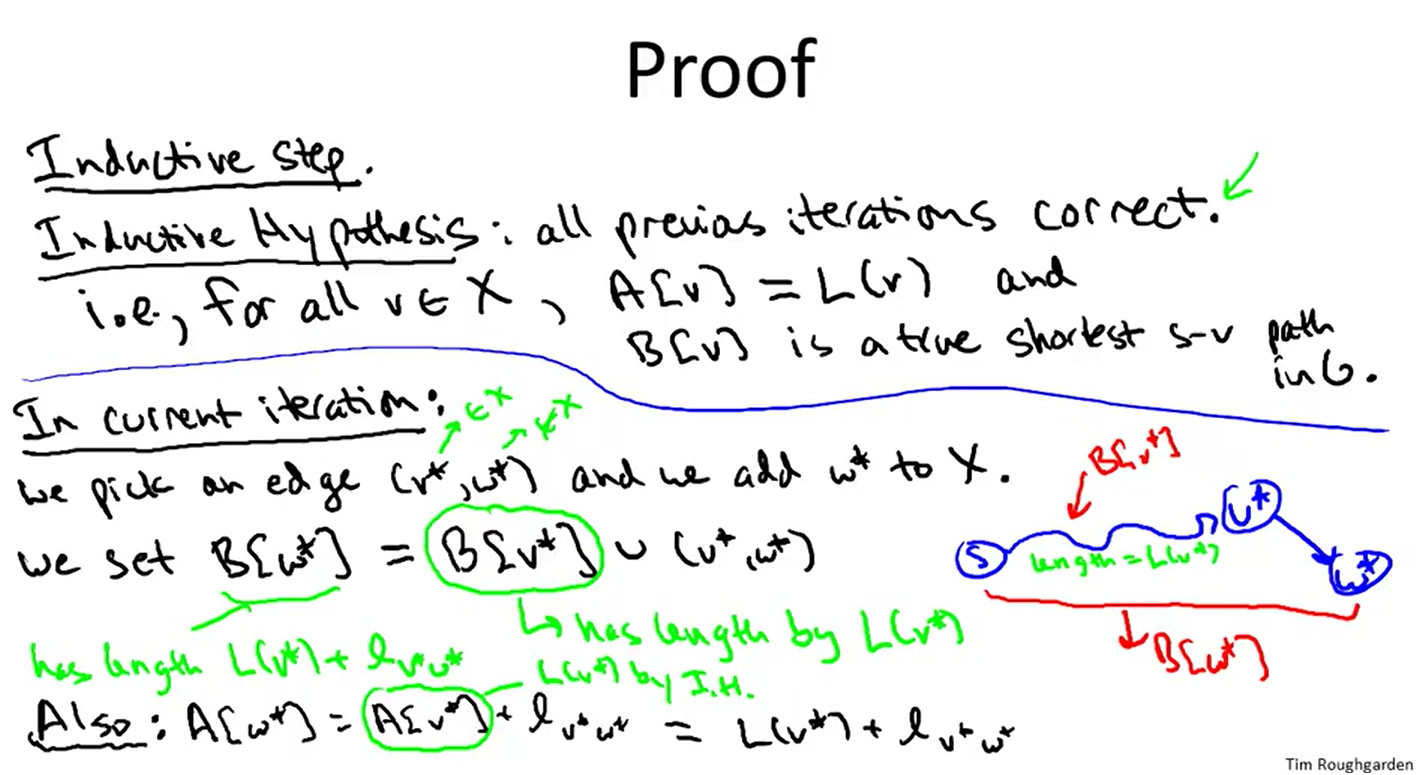 Proof
Inductive step.
Inductive Hypothesis: all previous iterations correct.
i.e., for all v ∈ X, A[v] = L(v) and
B[v] is a true shortest s-v path
in G.
In current iteration:
∈ X ∉ X
we pick an edge (v*, w*) and we add w* to X.
we set B[w*] = B[v*] ∪ (v*, w*)
has length L(v*) + l_{v*w*}
↳ has length by L(v*)
L(v*) by I.H.
Also: A[w*] = A[v*] + l_{v*w*} = L(v*) + l_{v*w*}
B[v*]
s
v*
length = L(v*)
w*
B[w*]
Tim Roughgarden